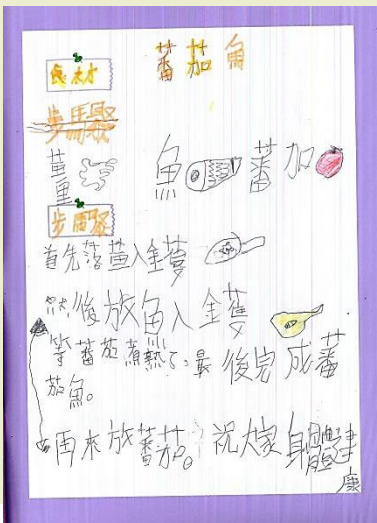 蕃茄魚
食材
步驟
薑 魚 蕃加
步驟
首先落薑入鑊
然後放魚入鑊
等蕃茄煮熟了,最後完成蕃
茄魚。
再來放蕃茄。祝大家身體健
康